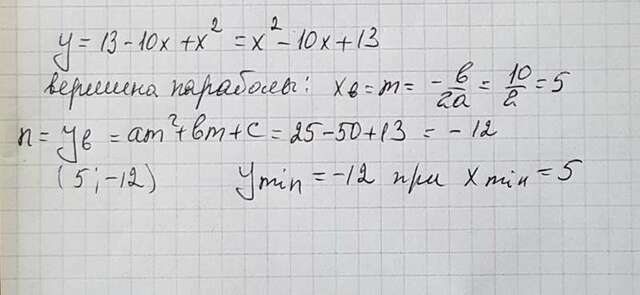 y = 13 - 10x + x² = x² - 10x + 13
вершина параболы: xв = m = -в/2a = 10/2 = 5
n = yв = am² + вm + c = 25 - 50 + 13 = -12
(5; -12) ymin = -12 при xmin = 5